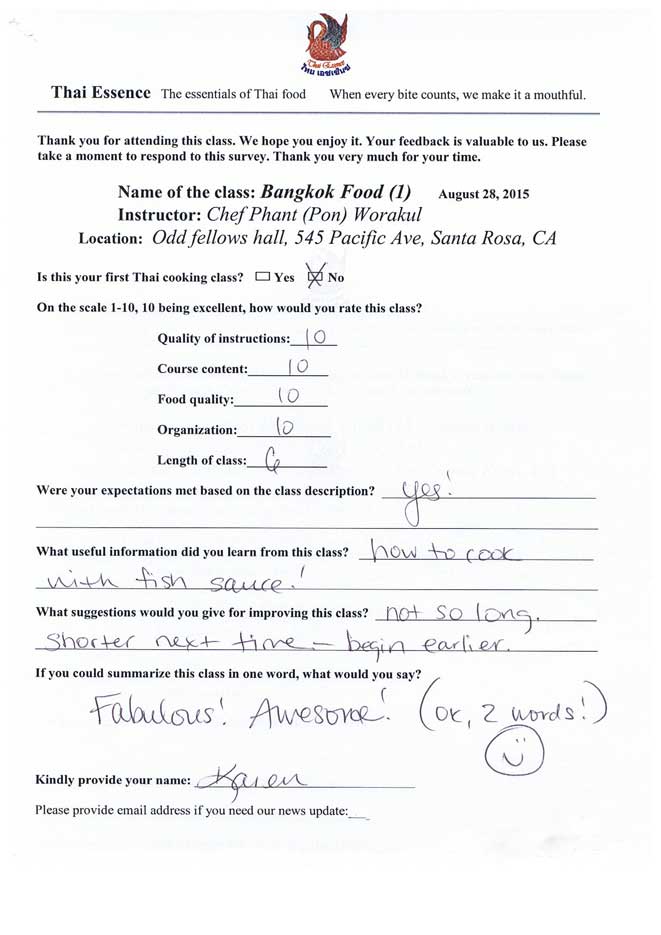 Thai Essence
ไทย เอสเซ้นซ์
Thai Essence The essentials of Thai food When every bite counts, we make it a mouthful.
Thank you for attending this class. We hope you enjoy it. Your feedback is valuable to us. Please
take a moment to respond to this survey. Thank you very much for your time.
Name of the class: Bangkok Food (1) August 28, 2015
Instructor: Chef Phant (Pon) Worakul
Location: Odd fellows hall, 545 Pacific Ave, Santa Rosa, CA
Is this your first Thai cooking class? Yes No
On the scale 1-10, 10 being excellent, how would you rate this class?
Quality of instructions: 10
Course content: 10
Food quality: 10
Organization: 10
Length of class: 6
Were your expectations met based on the class description? yes!
What useful information did you learn from this class? how to cook
with fish sauce!
What suggestions would you give for improving this class? not so long.
Shorter next time – begin earlier.
If you could summarize this class in one word, what would you say?
Fabulous! Awesome! (OK, 2 words!)
Kindly provide your name: Karen
Please provide email address if you need our news update: